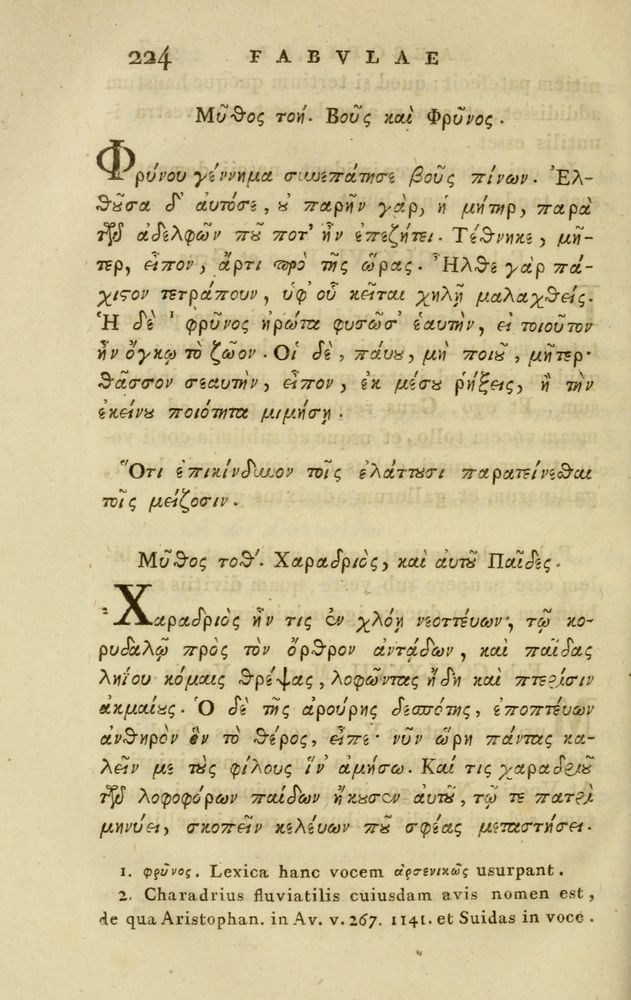 224 FABVLAE
Μῦθος τοή. Βοῦς καὶ Φρῦνος.
Φρύνου γέννημα συνεπάτησε βοῦς πίνων. Ἐλ-
θοῦσα δ' αὐτόσε, οὐ παρῆν γάρ, ἡ μήτηρ, παρὰ
τῶν ἀδελφῶν ποῦ ποτ' ἦν ἐπεζήτει. Τέθνηκε, μῆ-
τερ, εἶπον, ἄρτι πρὸ τῆς ὥρας. Ἦλθε γὰρ πά-
χιστον τετράπουν, ὑφ' οὗ κεῖται χηλῇ μαλαχθείς.
Ἡ δὲ 1 φρῦνος ἠρώτα φυσῶσ' ἑαυτὴν, εἰ τοιοῦτον
ἦν ὄγκῳ τὸ ζῶον. Οἱ δὲ, παύου, μὴ ποιοῦ, μῆτερ·
θᾶσσον σεαυτὴν, εἶπον, ἐκ μέσου ῥήξεις, ἢ τὴν
ἐκείνου ποιότητα μιμήσῃ.
Ὅτι ἐπικίνδυνον τοῖς ἐλάττουσι παρατείνεσθαι
τοῖς μείζοσιν.
Μῦθος τοθ'. Χαραδριὸς, καὶ αὐτοῦ Παῖδες.
2 Χαραδριὸς ἦν τις ἐν χλόῃ νεοττεύων, τῷ κο-
ρυδαλῷ πρὸς τὸν ὄρθρον ἀντᾴδων, καὶ παῖδας
ληίου κόμαις θρέψας, λοφῶντας ἤδη καὶ πτεροῖσιν
ἀκμαίους. Ὁ δὲ τῆς ἀρούρης δεσπότης, ἐποπτεύων
ἀνθηρὸν ὂν τὸ θέρος, εἶπε· νῦν ὥρη πάντας κα-
λεῖν με τοὺς φίλους ἵν' ἀμήσω. Καί τις χαραδριοῦ
τῶν λοφοφόρων παίδων ἤκουσεν αὐτοῦ, τῷ τε πατρὶ
μηνύει, σκοπεῖν κελεύων ποῦ σφέας μεταστήσει.
1. φρῦνος. Lexica hanc vocem ἀρσενικῶς usurpant.
2. Charadrius fluviatilis cuiusdam avis nomen est,
de qua Aristophan. in Av. v. 267. 1141. et Suidas in voce.